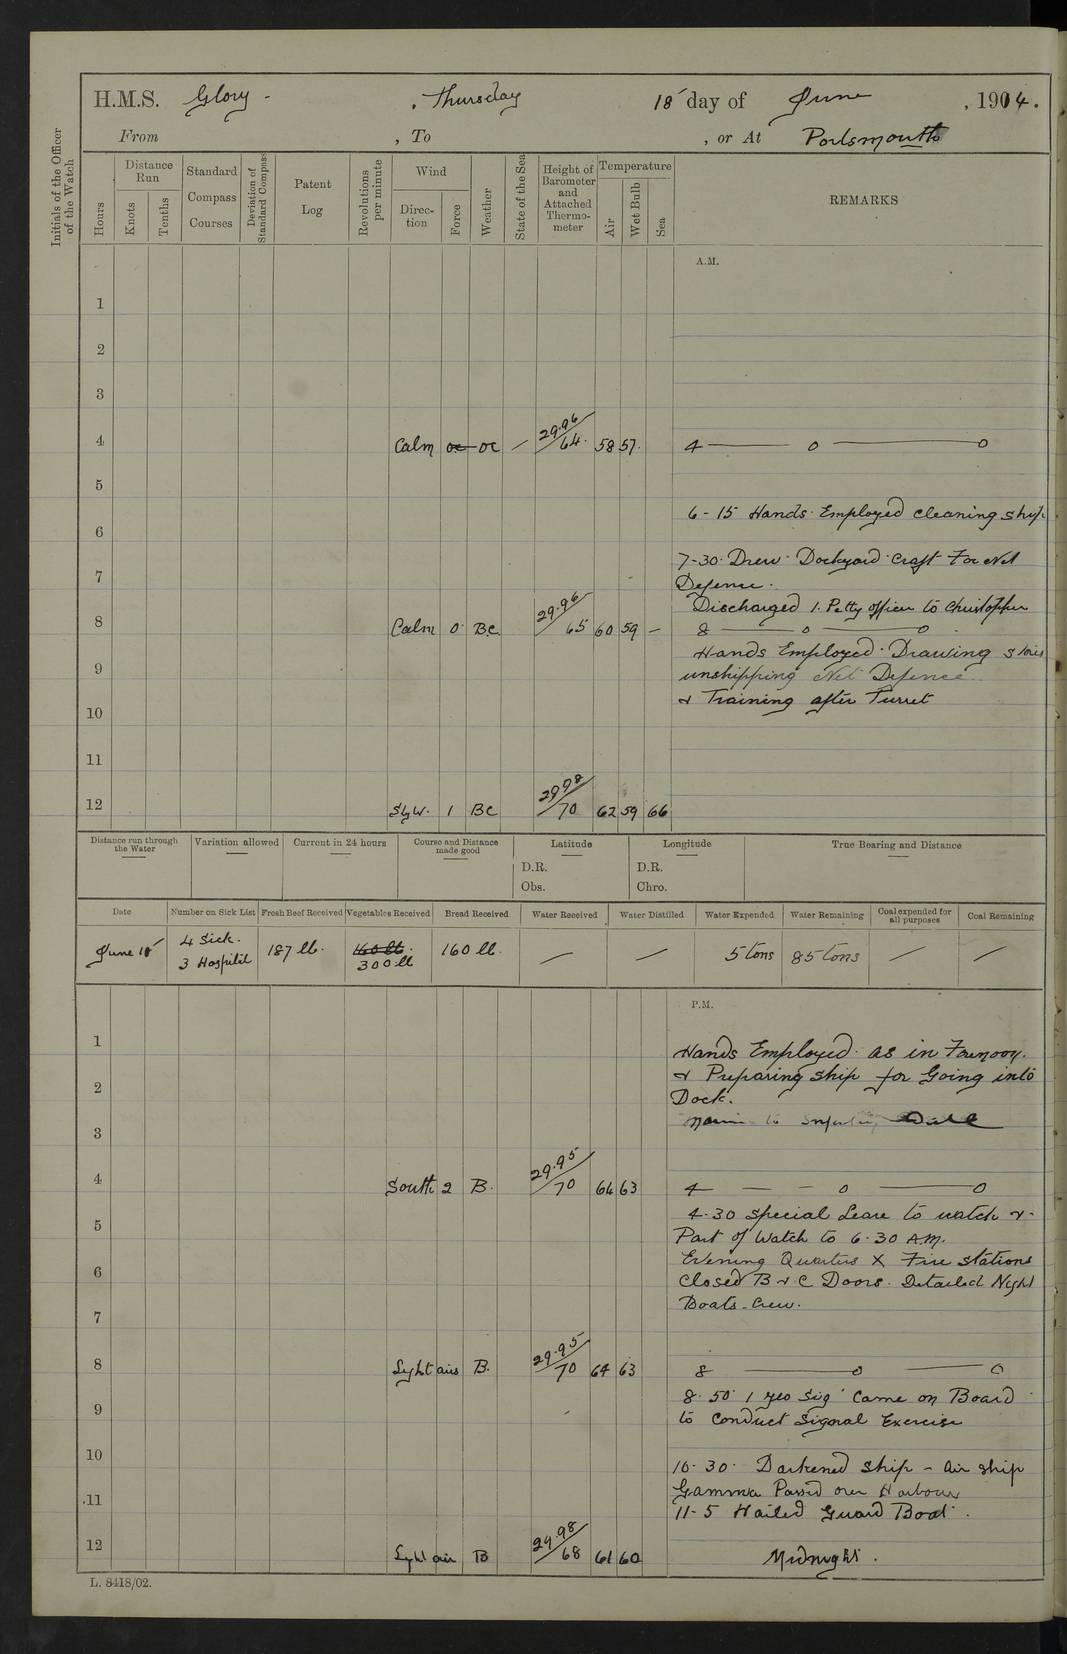 H.M.S. Glory - , Thursday 18 day of June , 1904.
From , To , or At Portsmouth
Initials of the Officer of the Watch
Hours
Distance Run
Knots
Tenths
Standard Compass Courses
Deviation of Standard Compass
Patent Log
Revolutions per minute
Wind
Direc-tion
Force
Weather
State of the Sea
Height of Barometer and Attached Thermo-meter
Temperature
Air
Wet Bulb
Sea
REMARKS
A.M.
1
2
3
4 Calm oc oc / 29.96/64. 58 57. 4 — o — o
5
6-15 Hands Employed Cleaning Ship
6
7-30. Drew Dockyard Craft For Net
7 Defence.
Discharged 1. Petty officer to Christopher
8 Calm 0 B.C. 29.96/65 60 59 — 8 — o — o
Hands Employed Drawing
9 unshipping Net Defence
& Training after Turret
10
11
12 SbyW. 1 BC 29.98/70 62 59 66
Distance run through the Water
Variation allowed
Current in 24 hours
Course and Distance made good
Latitude
D.R.
Obs.
Longitude
D.R.
Chro.
True Bearing and Distance
Date Number on Sick List Fresh Beef Received Vegetables Received Bread Received Water Received Water Distilled Water Expended Water Remaining Coal expended for all purposes Coal Remaining
June 18 4 Sick. 187 lb. 160 lb. 160 lb. — — 5 tons 85 tons — —
3 Hospital 300 lb
P.M.
1 Hands Employed as in Forenoon.
2 & Preparing Ship for Going into
Dock.
to Drill
3
4 South 2 B. 29.95/70 64 63 4 — — o — o
4.30 Special Leave to watch &
5 Part of Watch to 6.30 A.M.
Evening Quarters X Fire Stations
6 Closed B & C Doors. Detailed Night
Boats Crew.
7
8 Light airs B. 29.95/70 64 63 8 — o — o
8.50 1 Yeo Sig Came on Board
9 to Conduct Signal Exercise
10
10.30. Darkened Ship - Air ship
Gamma Passed over Harbour
11 11-5 Hailed Guard Boat.
12 Light air B 29.98/68 61 60 Midnight.
L. 8418/02.